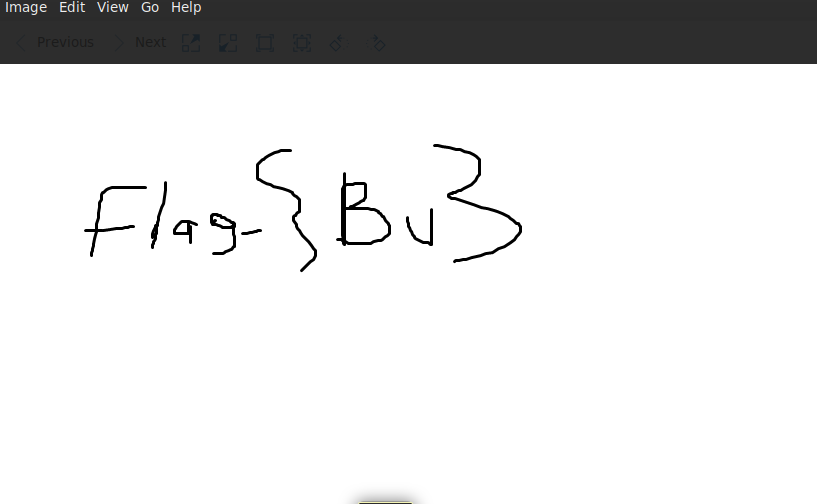 Image Edit View Go Help
Previous Next
Flag-{Bu}